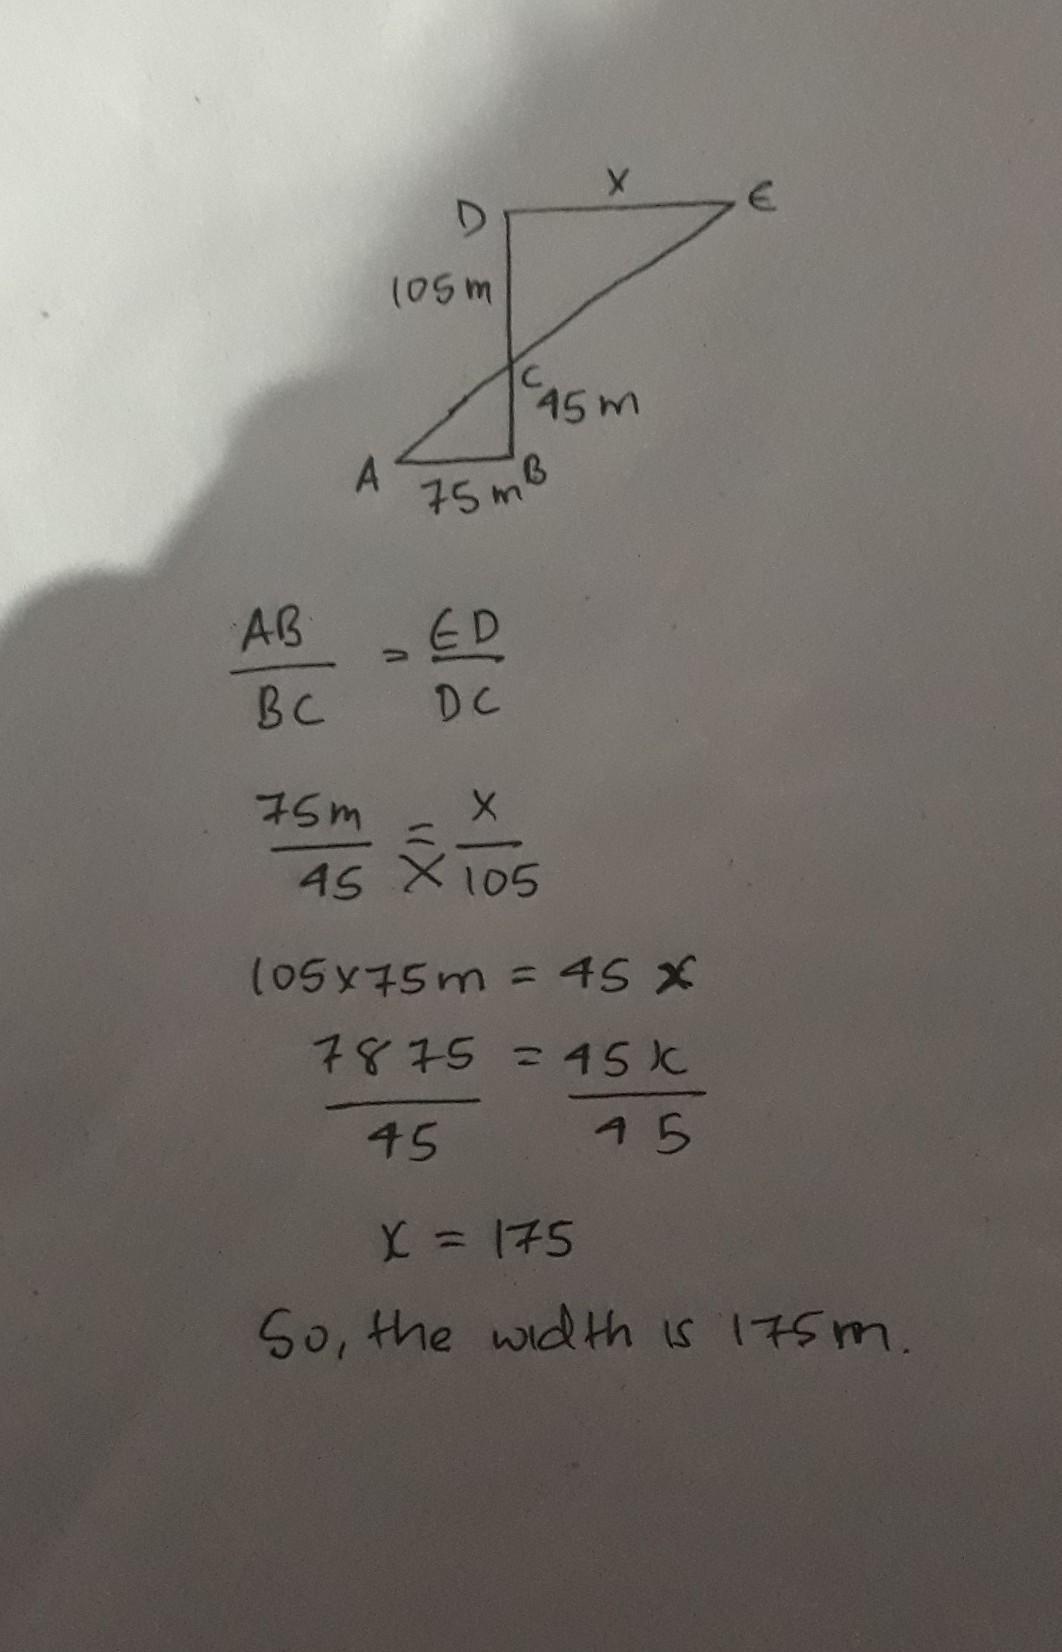 X
D E
105m
C
45m
A B
75m
AB = ED
BC DC
75m = X
45 X 105
105x75m = 45 x
7875 = 45x
45 45
x = 175
So, the width is 175m.